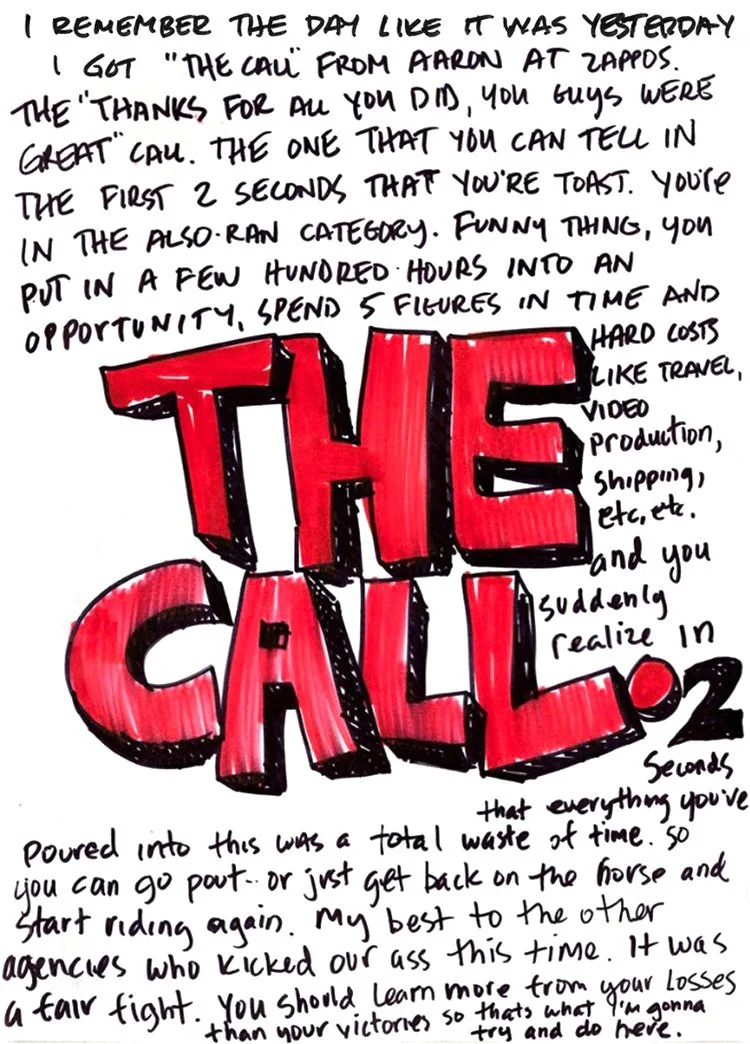 I REMEMBER THE DAY LIKE IT WAS YESTERDAY
I GOT "THE CALL" FROM AARON AT ZAPPOS.
THE "THANKS FOR ALL YOU DID, YOU GUYS WERE
GREAT" CALL. THE ONE THAT YOU CAN TELL IN
THE FIRST 2 SECONDS THAT YOU'RE TOAST. YOU'RE
IN THE ALSO-RAN CATEGORY. FUNNY THING, YOU
PUT IN A FEW HUNDRED HOURS INTO AN
OPPORTUNITY, SPEND 5 FIGURES IN TIME AND
HARD COSTS
LIKE TRAVEL,
VIDEO
production,
shipping,
etc, etc.
and you
suddenly
realize in
THE
CALL.
2
Seconds
that everything you've
poured into this was a total waste of time. so
you can go pout.. or just get back on the horse and
start riding again. My best to the other
agencies who kicked our ass this time. It was
a fair fight. You should learn more from your losses
than your victories so thats what I'm gonna
try and do here.